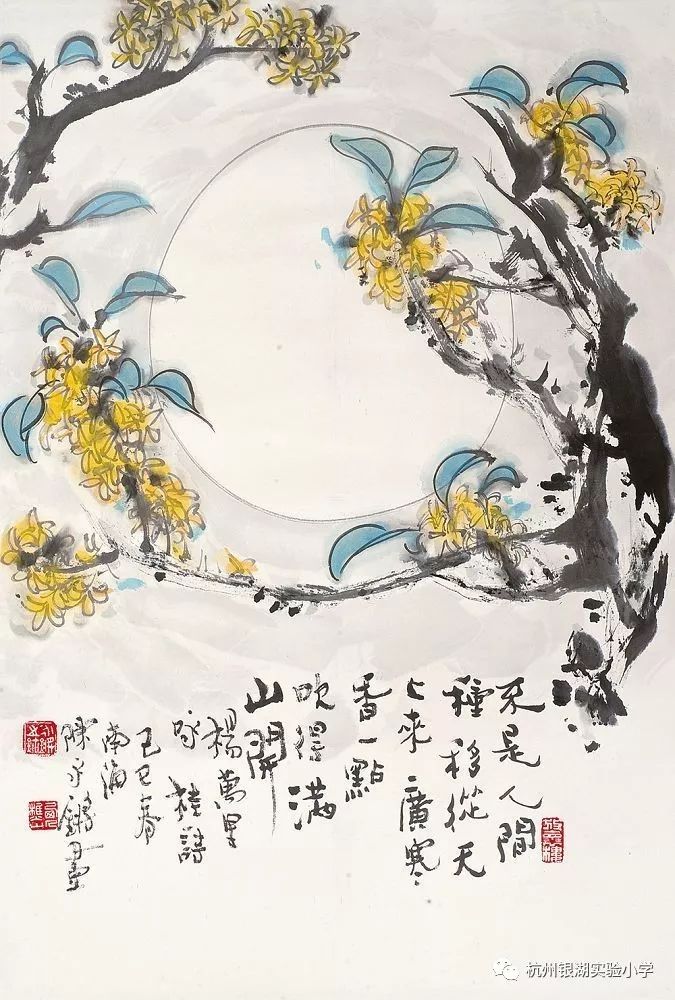 不是人間
種移從天
上來廣寒
香一點
吹得满
山開
楊萬里
咏桂詩
己巳春
南海
陳永鏘畫
杭州银湖实验小学